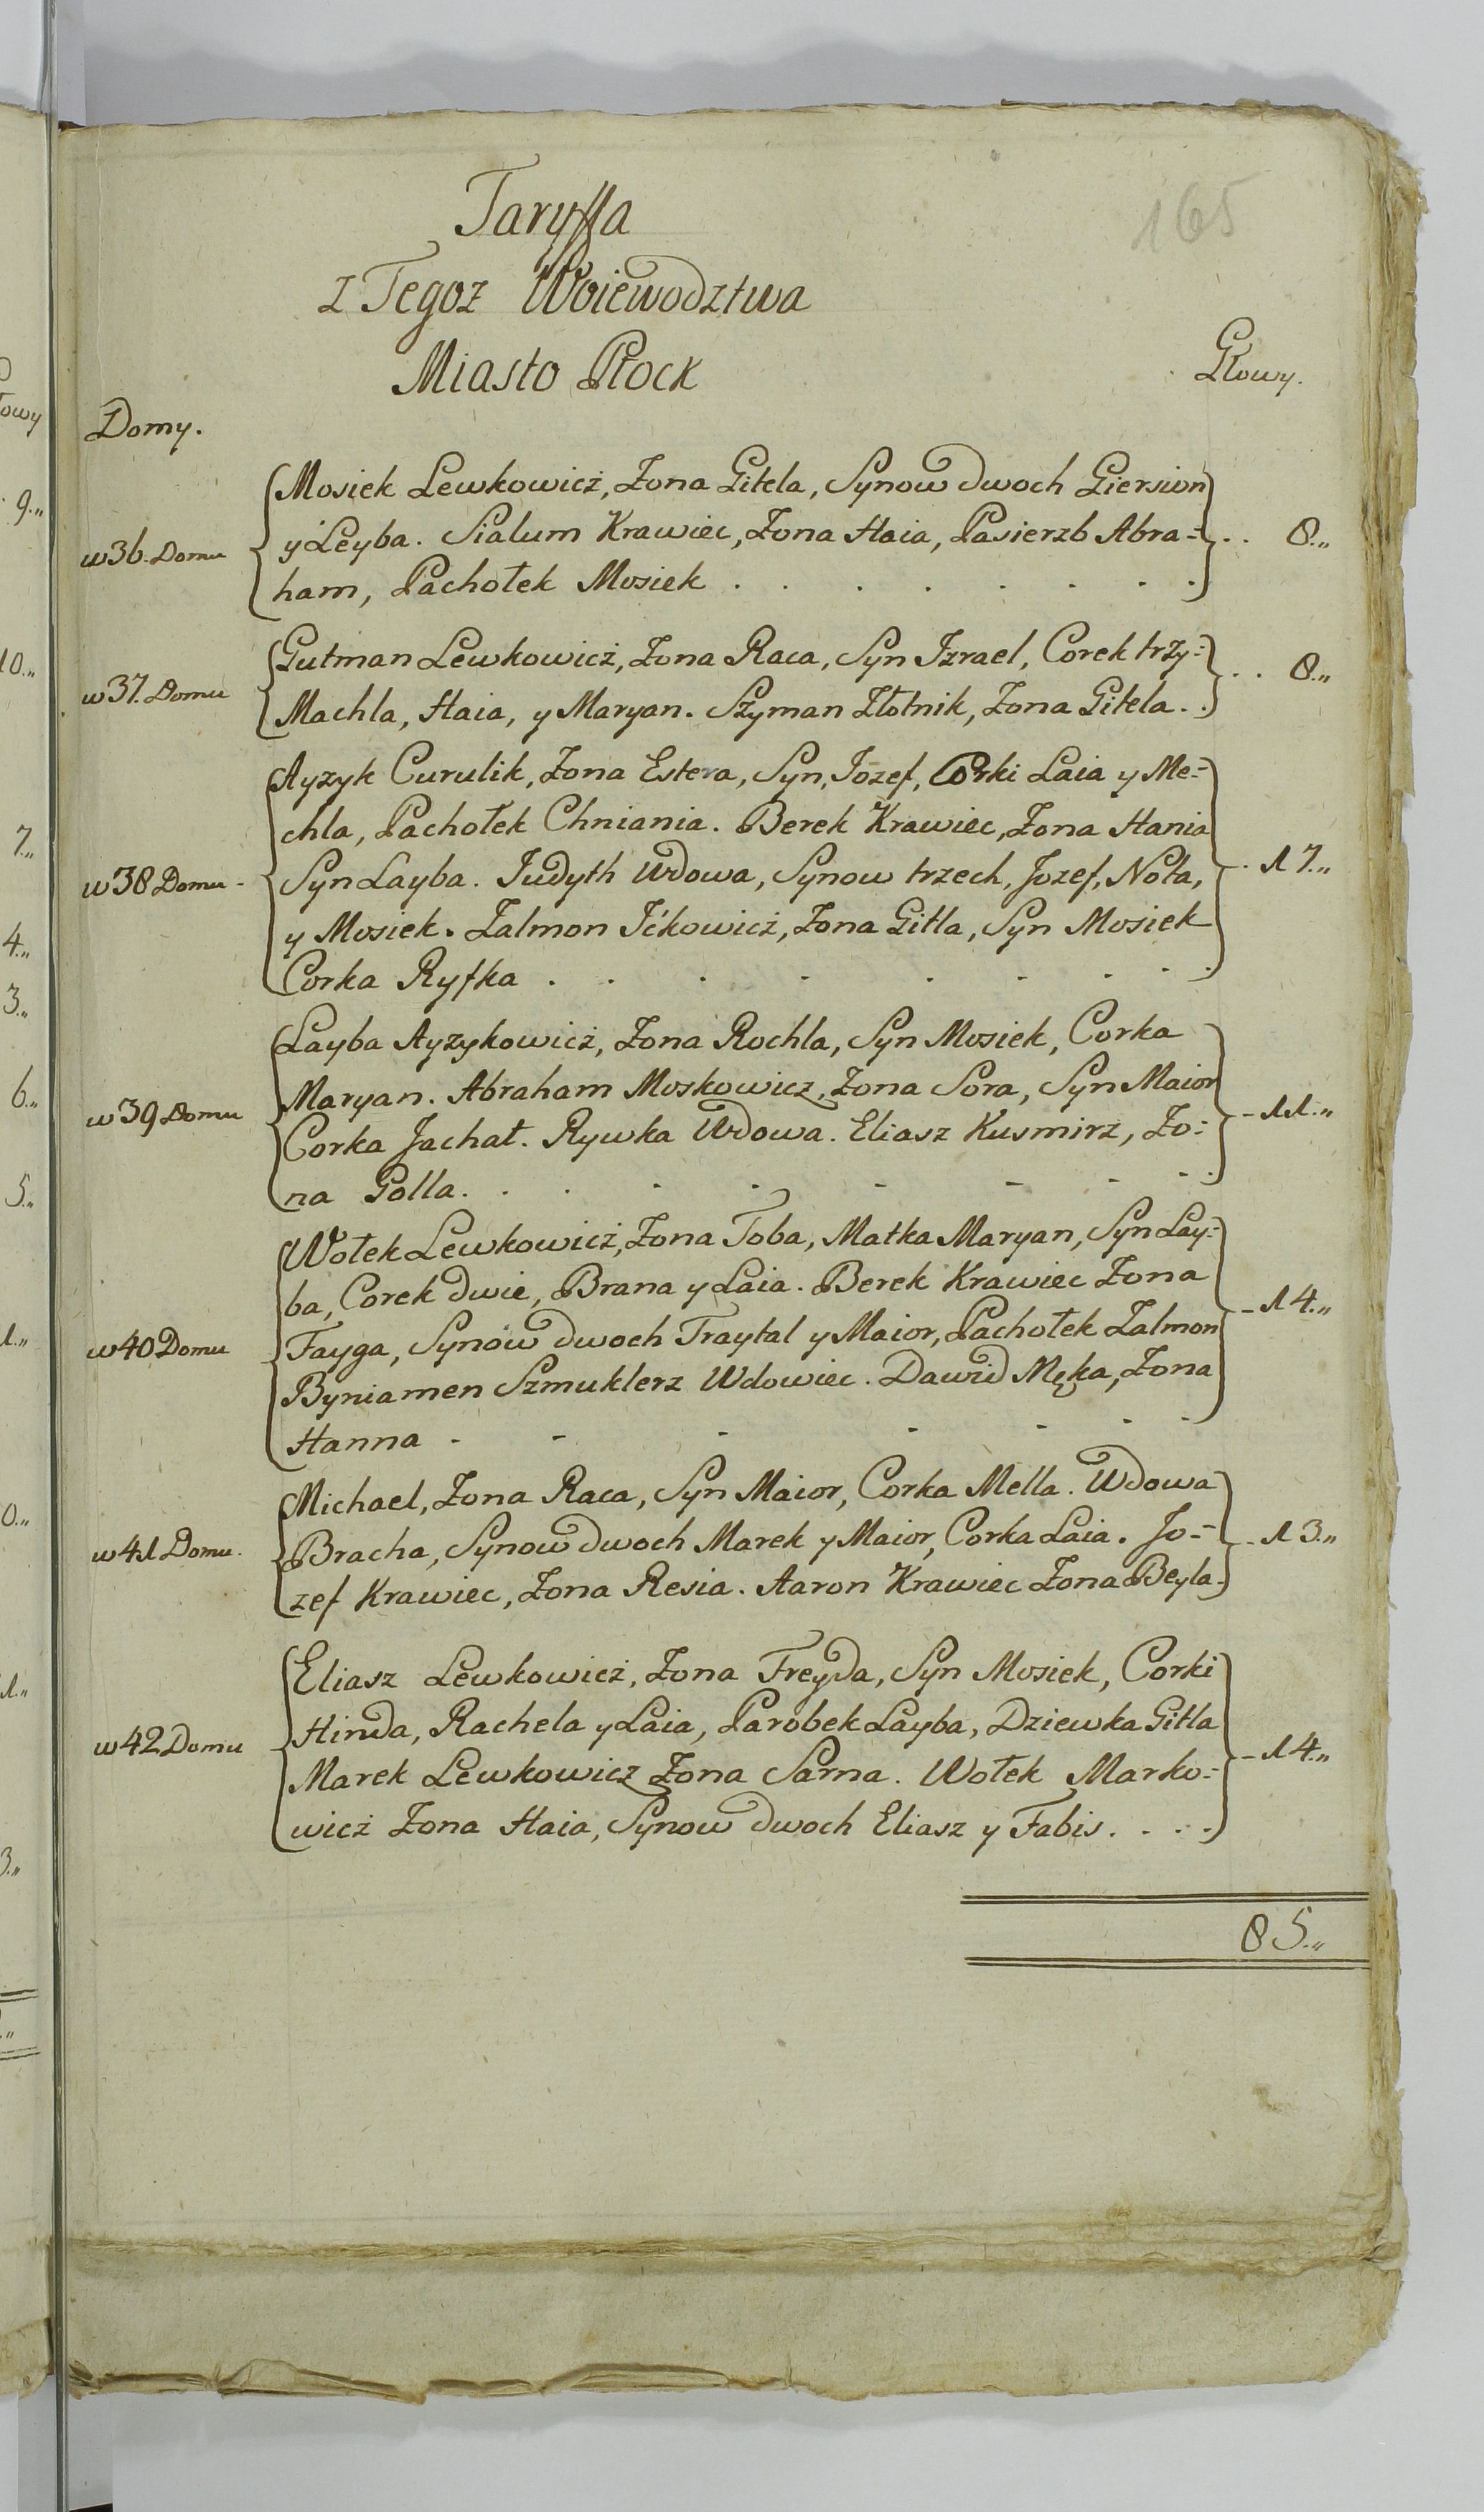 165
Taryffa
z Tegoz Woiewodztwa
Miasto Płock
Głowy.
Domy.
Mosiek Lewkowicz, Zona Gitela, Synow dwoch Giersion
w 36. Domu y Leyba. Sialum Krawiec, Zona Haia, Pasierzb Abra= . . 8.,,
ham, Pachołek Mosiek . . . . . . . .
Gutman Lewkowicz, Zona Raca, Syn Izrael, Corek trzy=
w 37. Domu Machla, Haia, y Maryan. Szyman Złotnik, Zona Gitela. . . . 8.,,
Ayzyk Curulik, Zona Estera, Syn, Jozef, Corki Laia y Me=
chla, Pachołek Chniania. Berek Krawiec, Zona Hania
w 38 Domu - Syn Layba. Judyth Wdowa, Synow trzech, Jozef, Nota, . 17.,,
y Mosiek. Zalmon Ickowicz, Zona Gitla, Syn Mosiek
Corka Ryfka . . . - - - - - .
Layba Ayzykowicz, Zona Rochla, Syn Mosiek, Corka
Maryan. Abraham Moskowicz, Zona Sora, Syn Maior
w 39 Domu Corka Jachat. Rywka Wdowa. Eliasz Kusmirz, Zo= - 11.,,
na Golla. . . - - - - - - .
Wołek Lewkowicz, Zona Toba, Matka Maryan, Syn Lay=
ba, Corek dwie, Brana y Laia. Berek Krawiec Zona
w 40 Domu Fayga, Synow dwoch Traytal y Maior, Pachołek Zalmon - 14.,,
Byniamen Szmuklerz Wdowiec. Dawid Męka, Zona
Hanna - - - - - - -
Michael, Zona Raca, Syn Maior, Corka Mella. Wdowa
w 41 Domu. Bracha, Synow dwoch Marek y Maior, Corka Laia. Jo= - 13.,,
zef Krawiec, Zona Resia. Aaron Krawiec Zona Beyla.
Eliasz Lewkowicz, Zona Freyda, Syn Mosiek, Corki
Hinda, Rachela y Laia, Parobek Layba, Dziewka Gitla
w 42 Domu Marek Lewkowicz Zona Sarna. Wołek Marko= - 14.,,
wicz Zona Haia, Synow dwoch Eliasz y Fabis. . . .
85.,,